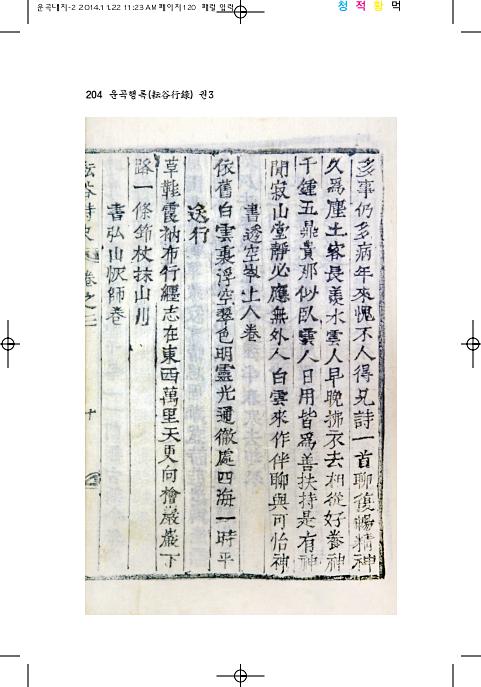 운곡내지-2 2014.11.22 11:23 AM 페이지120
청 적 황 먹
204 운곡행록(耘谷行錄) 권3
多事仍多病年來愧不人得見詩一首聊復暢精神
久爲塵土客長羨水雲人早晩拂衣去相從好養神
千鍾五鼎貴那似臥雲人日用皆爲善扶持是有神
聞寂山堂靜必應無外人白雲來作伴聊與可怡神
書透空上人卷
依舊白雲裏浮空翠色明靈光通徹處四海一時平
送行
草鞋霞衲布行纏志在東西萬里天更向檜巖巖下
路一條筇杖抹山川
書弘山恢師卷
耘谷詩史 卷之三 十